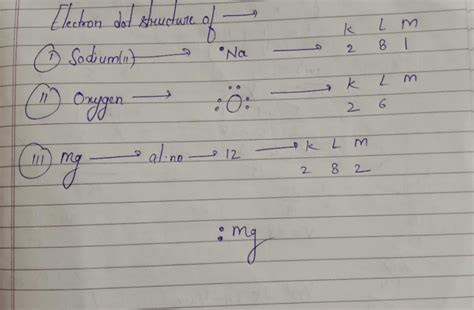 Electron dot structure of →
K L M
(i) Sodium(11) → •Na → 2 8 1
K L M
(ii) Oxygen → :Ö: → 2 6
(iii) Mg → at.no → 12 → K L M
2 8 2
:Mg